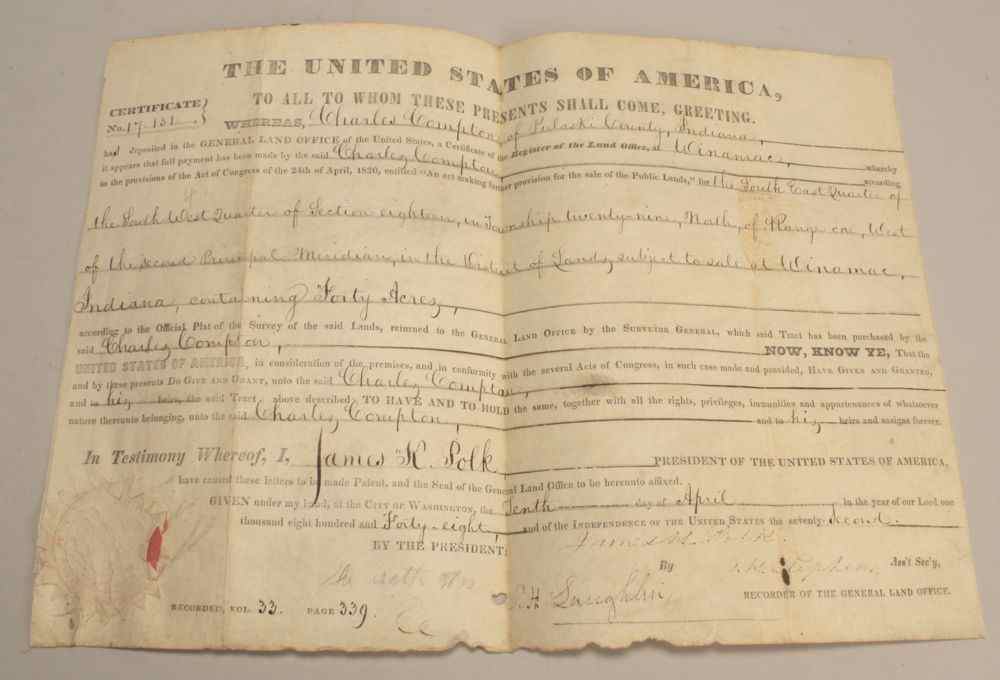 THE UNITED STATES OF AMERICA,
TO ALL TO WHOM THESE PRESENTS SHALL COME, GREETING.
CERTIFICATE
No. 17.151
WHEREAS, Charles Compton, of Pulaski County, Indiana,
had deposited in the GENERAL LAND OFFICE of the United States, a Certificate of the Register of the Land Office, at Winamac, whereby
it appears that full payment has been made by the said Charles Compton, according
to the provisions of the Act of Congress of the 24th of April, 1820, entitled "An act making further provision for the sale of the Public Lands," for the South East Quarter of
the South West Quarter of Section eighteen, in Township twenty-nine, North, of Range one, West
of the second Principal Meridian, in the District of Lands, subject to sale at Winamac,
Indiana, containing Forty Acres,
according to the Official Plat of the Survey of the said Lands, returned to the GENERAL LAND OFFICE by the SURVEYOR GENERAL, which said Tract has been purchased by the
said Charles Compton,
NOW, KNOW YE, That the
UNITED STATES OF AMERICA, in consideration of the premises, and in conformity with the several Acts of Congress, in such case made and provided, HAVE GIVEN AND GRANTED,
and by these presents DO GIVE AND GRANT, unto the said Charles Compton,
and to his heirs, the said Tract above described; TO HAVE AND TO HOLD the same, together with all the rights, privileges, immunities and appurtenances of whatsoever
nature thereunto belonging, unto the said Charles Compton, and to his heirs and assigns forever.
In Testimony Whereof, I, James K. Polk, PRESIDENT OF THE UNITED STATES OF AMERICA,
have caused these letters to be made Patent, and the Seal of the General Land Office to be hereunto affixed.
GIVEN under my hand, at the CITY OF WASHINGTON, the Tenth day of April in the year of our Lord one
thousand eight hundred and Forty-eight, and of the INDEPENDENCE OF THE UNITED STATES the seventy-second.
BY THE PRESIDENT: James K. Polk
By J. K. Stephens, Ass't Sec'y,
RECORDED, VOL. 33. PAGE 339.
S. H. Laughlin RECORDER OF THE GENERAL LAND OFFICE.